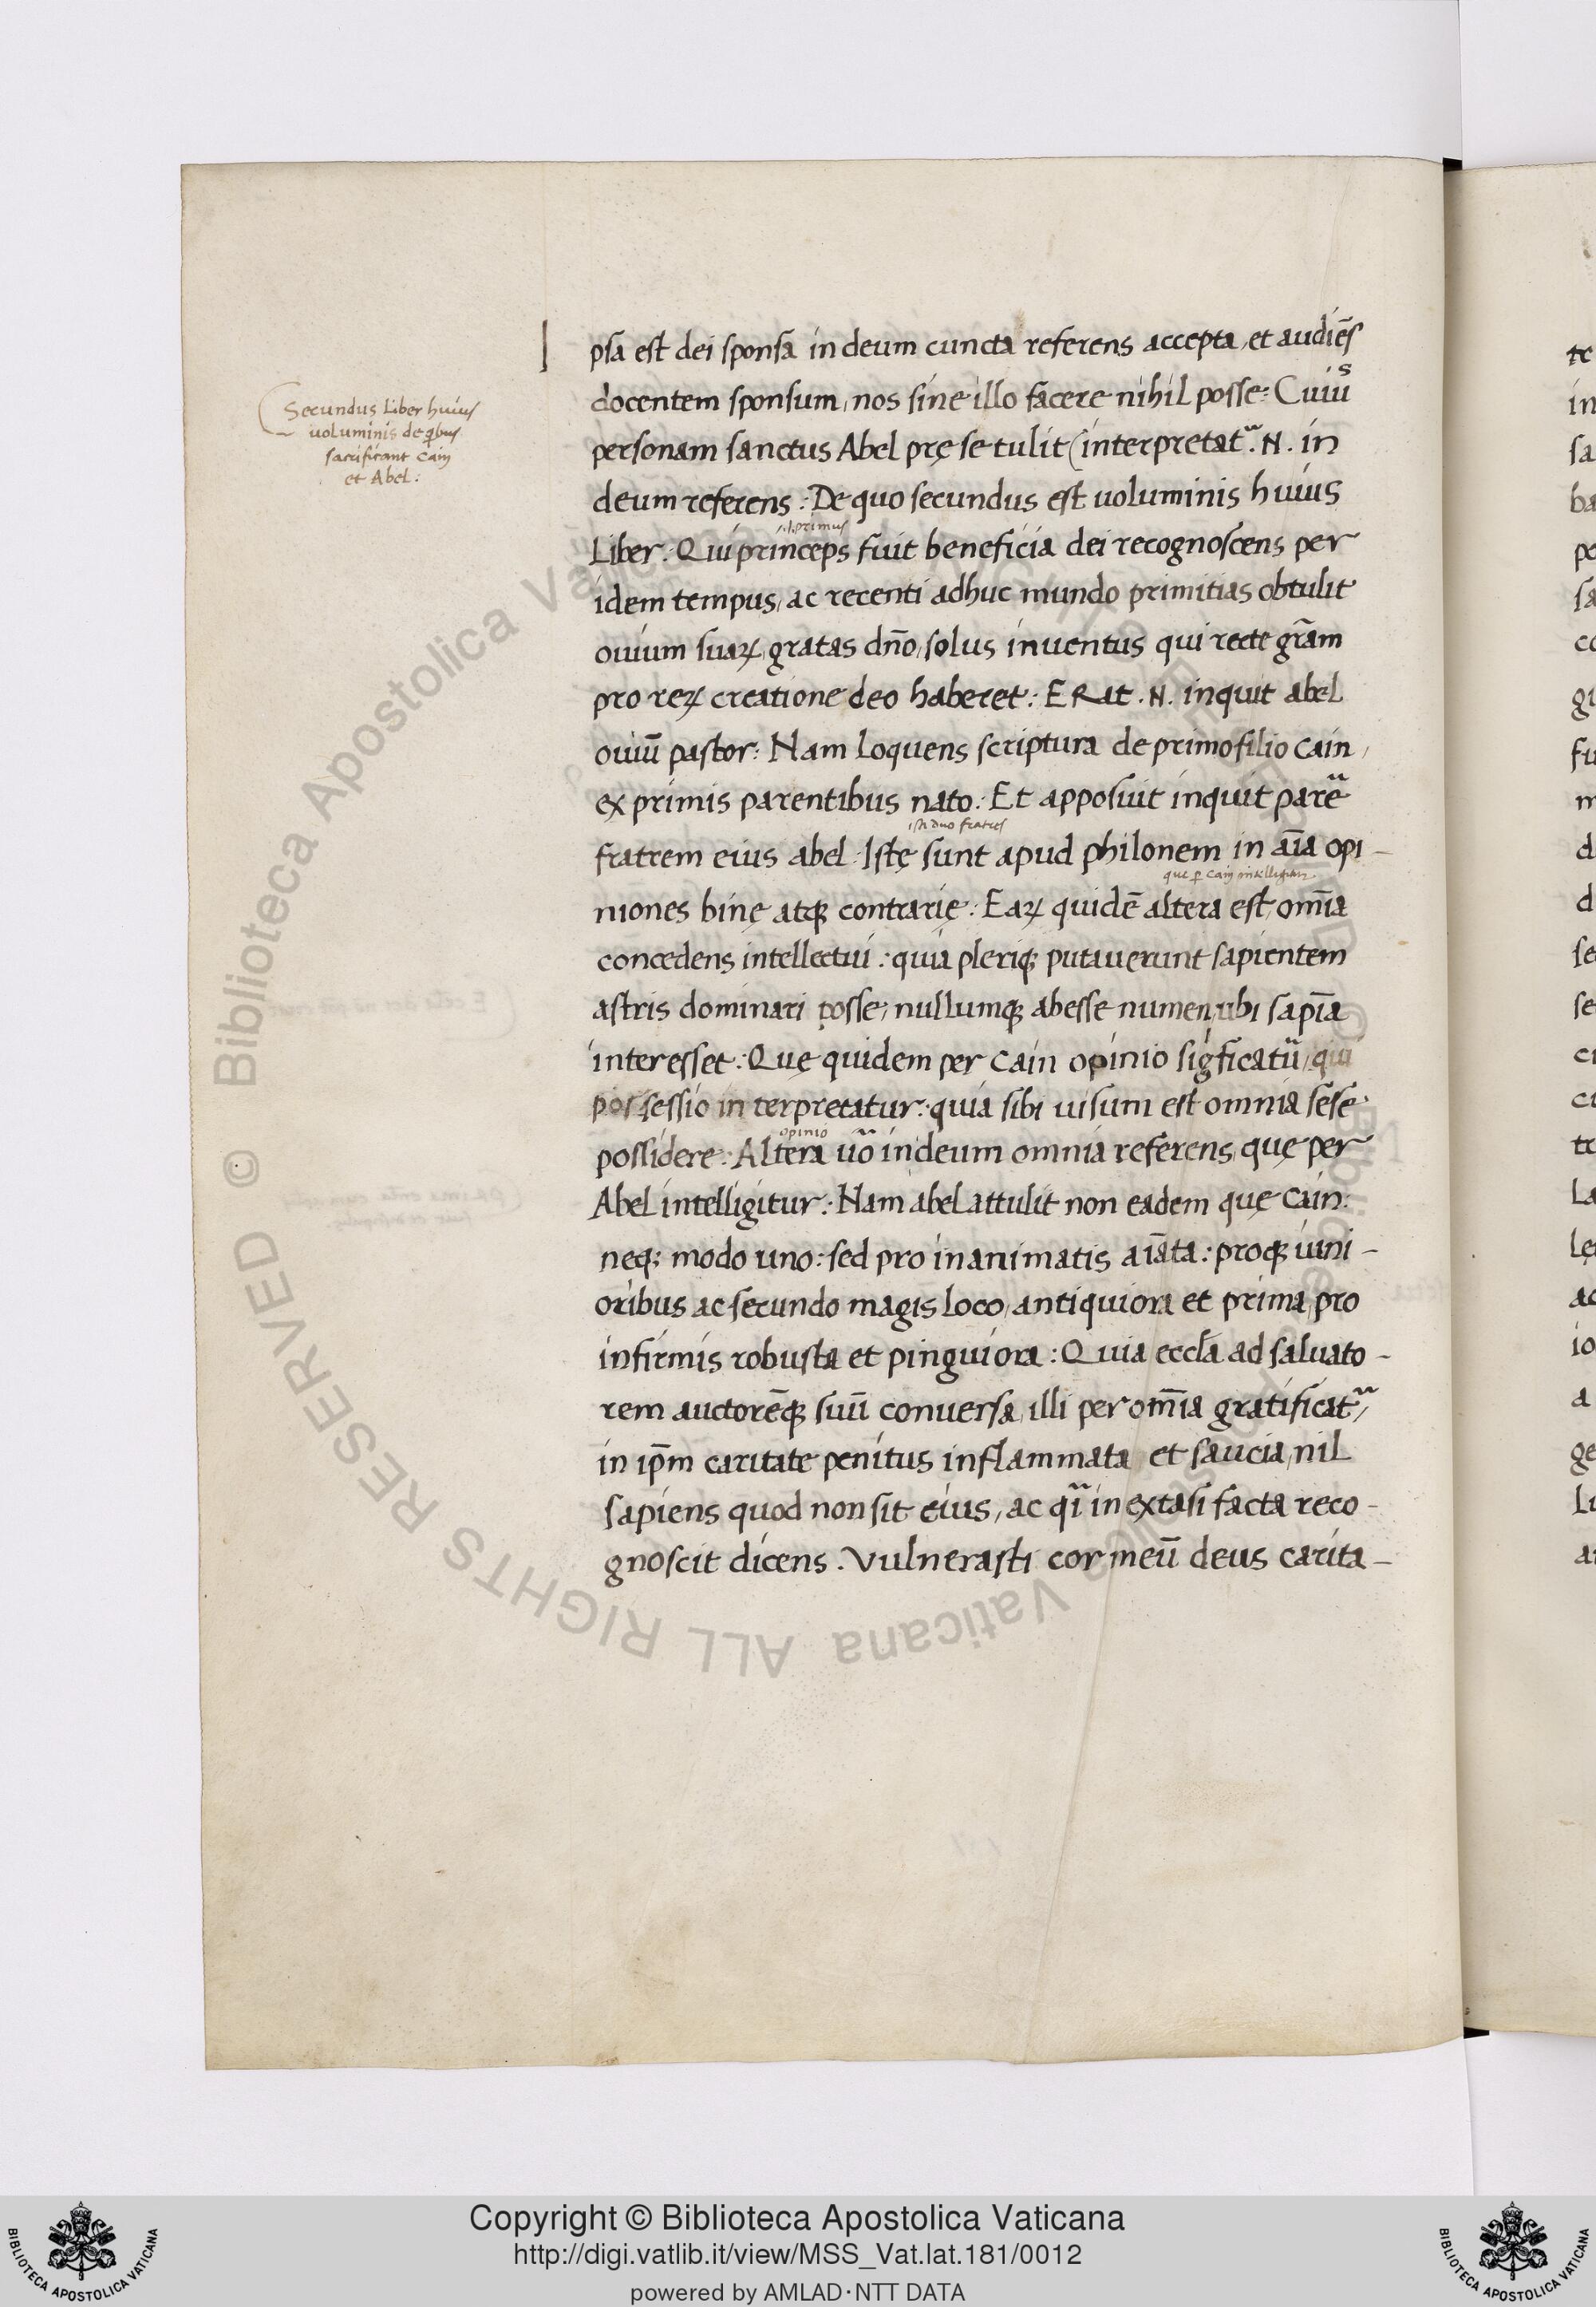 Secundus Liber huius
uoluminis de qbus
sacrificant Cain
et Abel:
I psa est dei sponsa in deum cuncta referens accepta, et audiēs
docentem sponsum, nos sine illo facere nihil posse: Cuiuˢ
personam sanctus Abel prę se tulit (interpretat᷑. N. in
deum referens: De quo secundus est uoluminis huius
.i. primus
Liber: Qui princeps fuit beneficia dei recognoscens per
idem tempus, ac recenti adhuc mundo primitias obtulit
ouium suaꝝ, gratas dn̄o, solus inuentus qui recte grām
pro reꝝ creatione deo haberet: ERat .N. inquit abel
ouiū pastor: Nam loquens scriptura de primo filio cain,
ex primis parentibus nato: Et apposuit inquit parē
isti duo fratres
fratrem eius abel: Istę sunt apud philonem in aīa opi-
que ꝑ Cain intelligitur
niones binę atqꝫ contrarię: Eaꝝ quidē altera est, om̄ia
concedens intellectui: quia pleriqꝫ putauerunt sapientem
astris dominari posse, nullumqꝫ abesse numen, ubi sapīa
interesset: Quę quidem per Cain opinio sigficatū, qui
possessio interpretatur: quia sibi uisum est omnia sese
opinio
possidere: Altera uō in deum omnia referens, quę per
Abel intelligitur: Nam abel attulit non eadem quę Cain:
neqꝫ modo uno: sed pro inanimatis aīata: proqꝫ iuni-
oribus ac secundo magis loco, antiquiora et prima, pro
infirmis robusta et pinguiora: Quia eccl̄a ad saluato-
rem auctorēqꝫ suū conuersa, illi per om̄ia gratificat᷑,
in ip̄m caritate penitus inflammata et saucia, nil
sapiens quod non sit eius, ac qī in extasi facta reco-
gnoscit dicens. Vulnerasti cor meū deus carita-
© Biblioteca Apostolica Vaticana ALL RIGHTS RESERVED
Copyright © Biblioteca Apostolica Vaticana
http://digi.vatlib.it/view/MSS_Vat.lat.181/0012
powered by AMLAD·NTT DATA
BIBLIOTECA APOSTOLICA VATICANA
BIBLIOTECA APOSTOLICA VATICANA